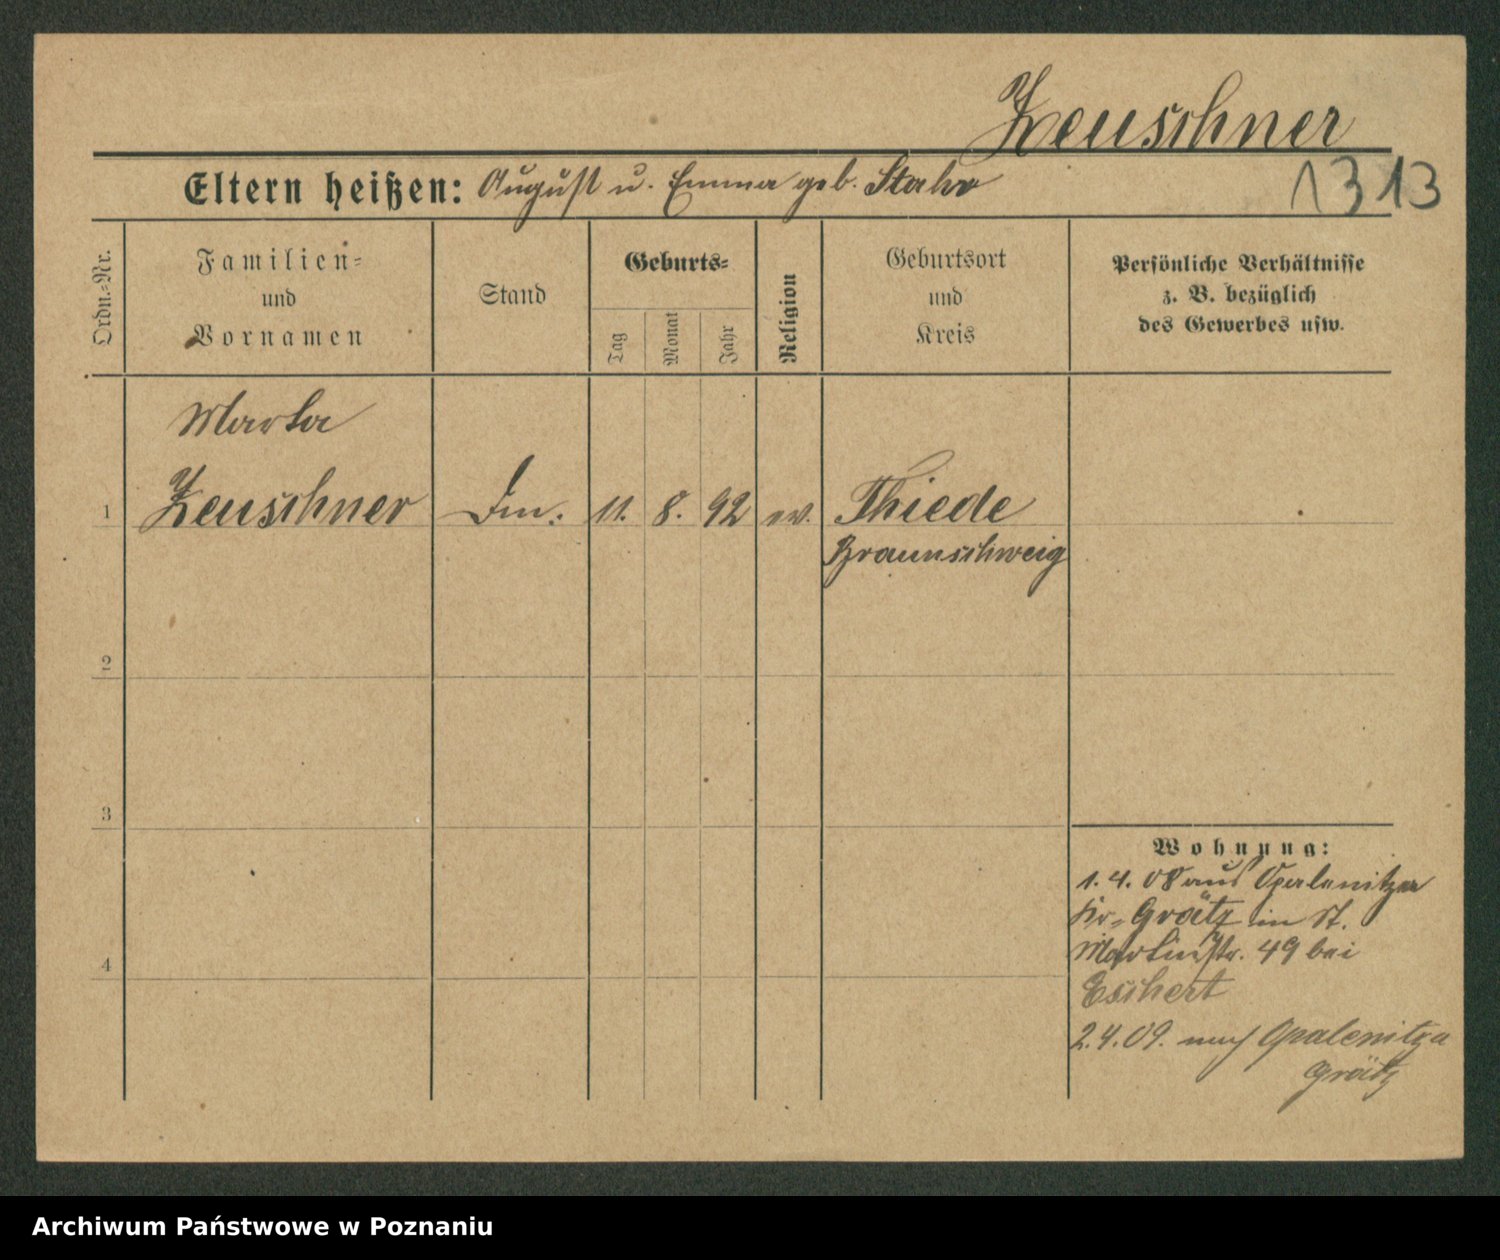 Zeuschner
1313
Eltern heißen: August u. Emma geb.
Ordn.-Nr.
Familien-
und
Vornamen
Stand
Geburts-
Tag
Monat
Jahr
Religion
Geburtsort
und
Kreis
Persönliche Verhältnisse
z. B. bezüglich
des Gewerbes usw.
Marta
1 Zeuschner 11. 8. 92 ev. Thiede
Braunschweig
2
3
4
Wohnung:
1. 4. 08 aus Opalenitza
Kr. Grätz in St.
Martinstr. 49 bei
Eschert
2. 4. 09. nach Opalenitza
Grätz
Archiwum Państwowe w Poznaniu